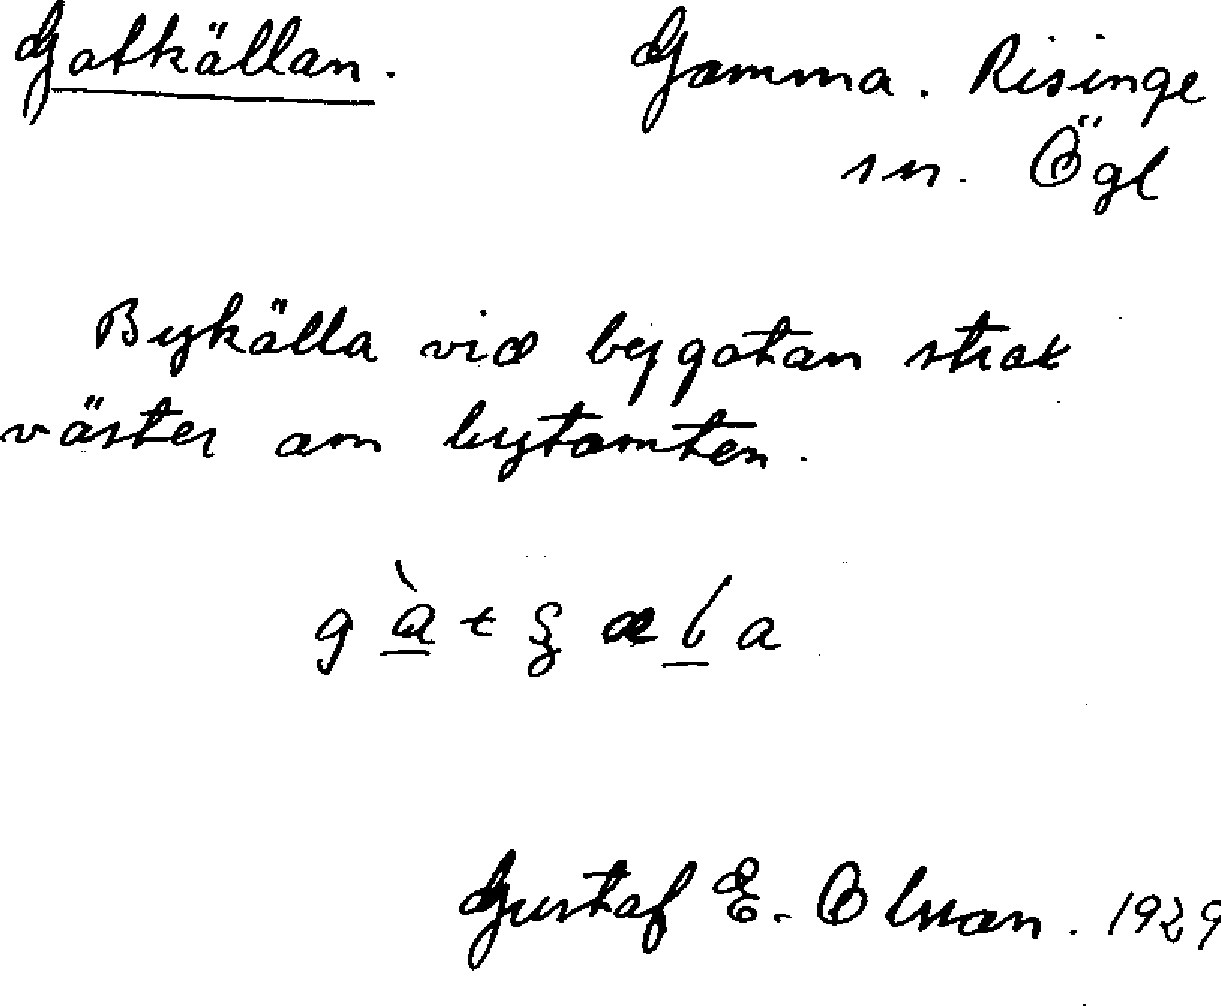 Gatkällan. Gamma. Risinge
sn. Ögl
Bykälla vid bygatan strax
väster om bytomten.
Gustaf E. Olsson. 1929